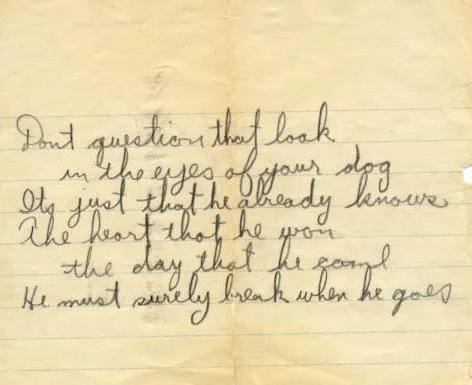 Dont question that look
in the eyes of your dog
Its just that he already knows
The heart that he won
the day that he came
He must surely break when he goes